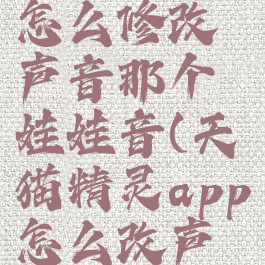 怎么修改
声音那个
娃娃音(天
猫精灵app
怎么改声